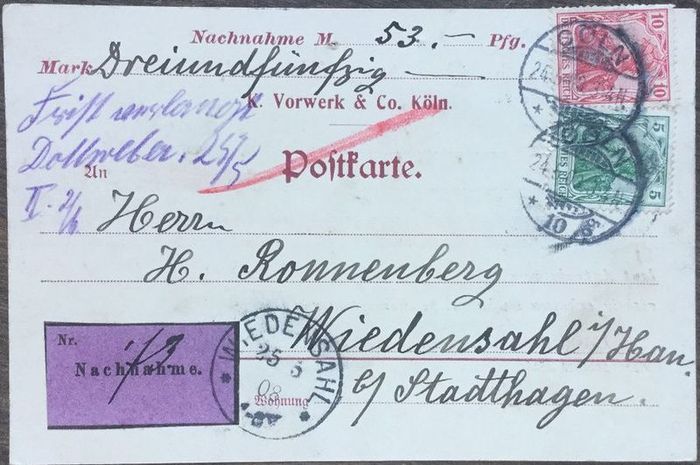 Nachnahme M. 53.— Pfg.
Mark Dreiundfünfzig —
K. Vorwerk & Co. Köln.
Frist verlangt
Dollweber. 25/5
II. 2/6
An
Postkarte.
Herrn
H. Ronnenberg
Wiedensahl i/Han.
b/ Stadthagen.
Wohnung
Nr.
Nachnahme.
WIEDENSAHL
25 5
08
10
DEUTSCHES REICH
10
5
5
CÖLN
24
CÖLN
24
* 10